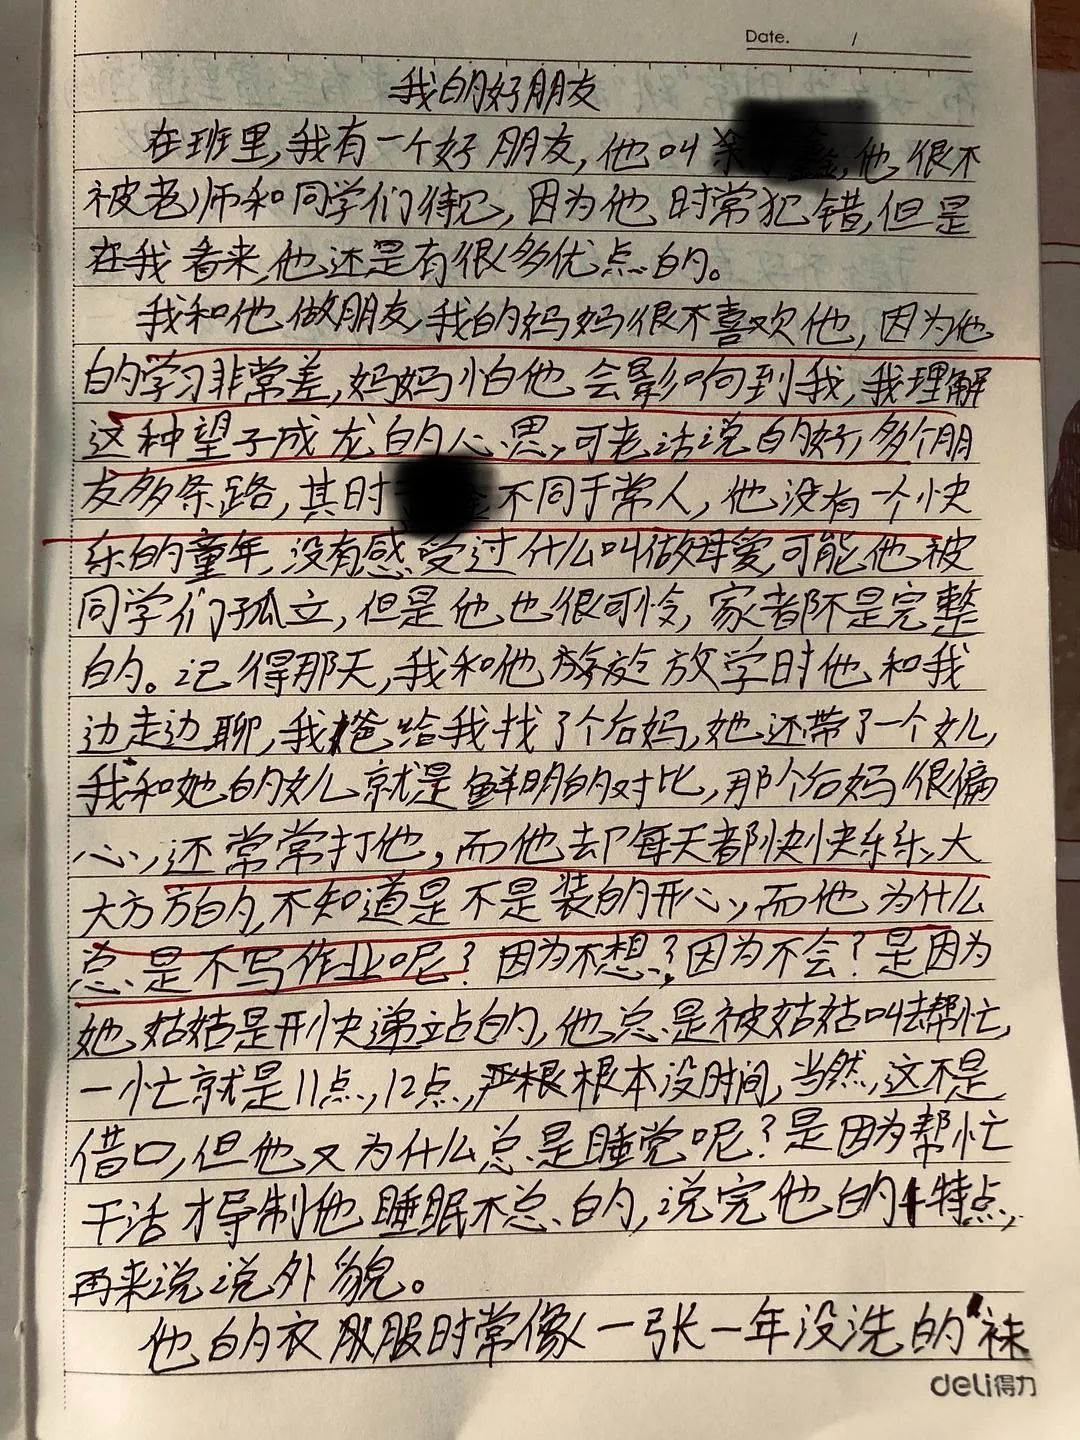 Date. /
我的好朋友
在班里,我有一个好朋友,他叫 鑫,他很不
被老师和同学们待见,因为他时常犯错,但是
在我看来,他还是有很多优点的。
我和他做朋友,我的妈妈很不喜欢他,因为他
的学习非常差,妈妈怕他会影响到我,我理解
这种望子成龙的心思,可老话说的好,多个朋
友多条路,其时 不同于常人,他没有一个快
乐的童年,没有感受过什么叫做母爱,可能他被
同学们孤立,但是他也很可怜,家都不是完整
的。记得那天,我和他 放学时他和我
边走边聊,我爸给我找了个后妈,她还带了一个女儿,
我和她的女儿就是鲜明的对比,那个后妈很偏
心,还常常打他,而他却每天都快快乐乐,大
大方方的,不知道是不是装的开心,而他为什么
总是不写作业呢?因为不想?因为不会?是因为
她姑姑是开快递站的,他总是被姑姑叫去帮忙,
一忙就是11点,12点,严根根本没时间,当然,这不是
借口,但他又为什么总是睡觉呢?是因为帮忙
干活才导制他睡眠不总的,说完他的特点,
再来说说外貌。
他的衣服时常像一张一年没洗的袜
deli得力